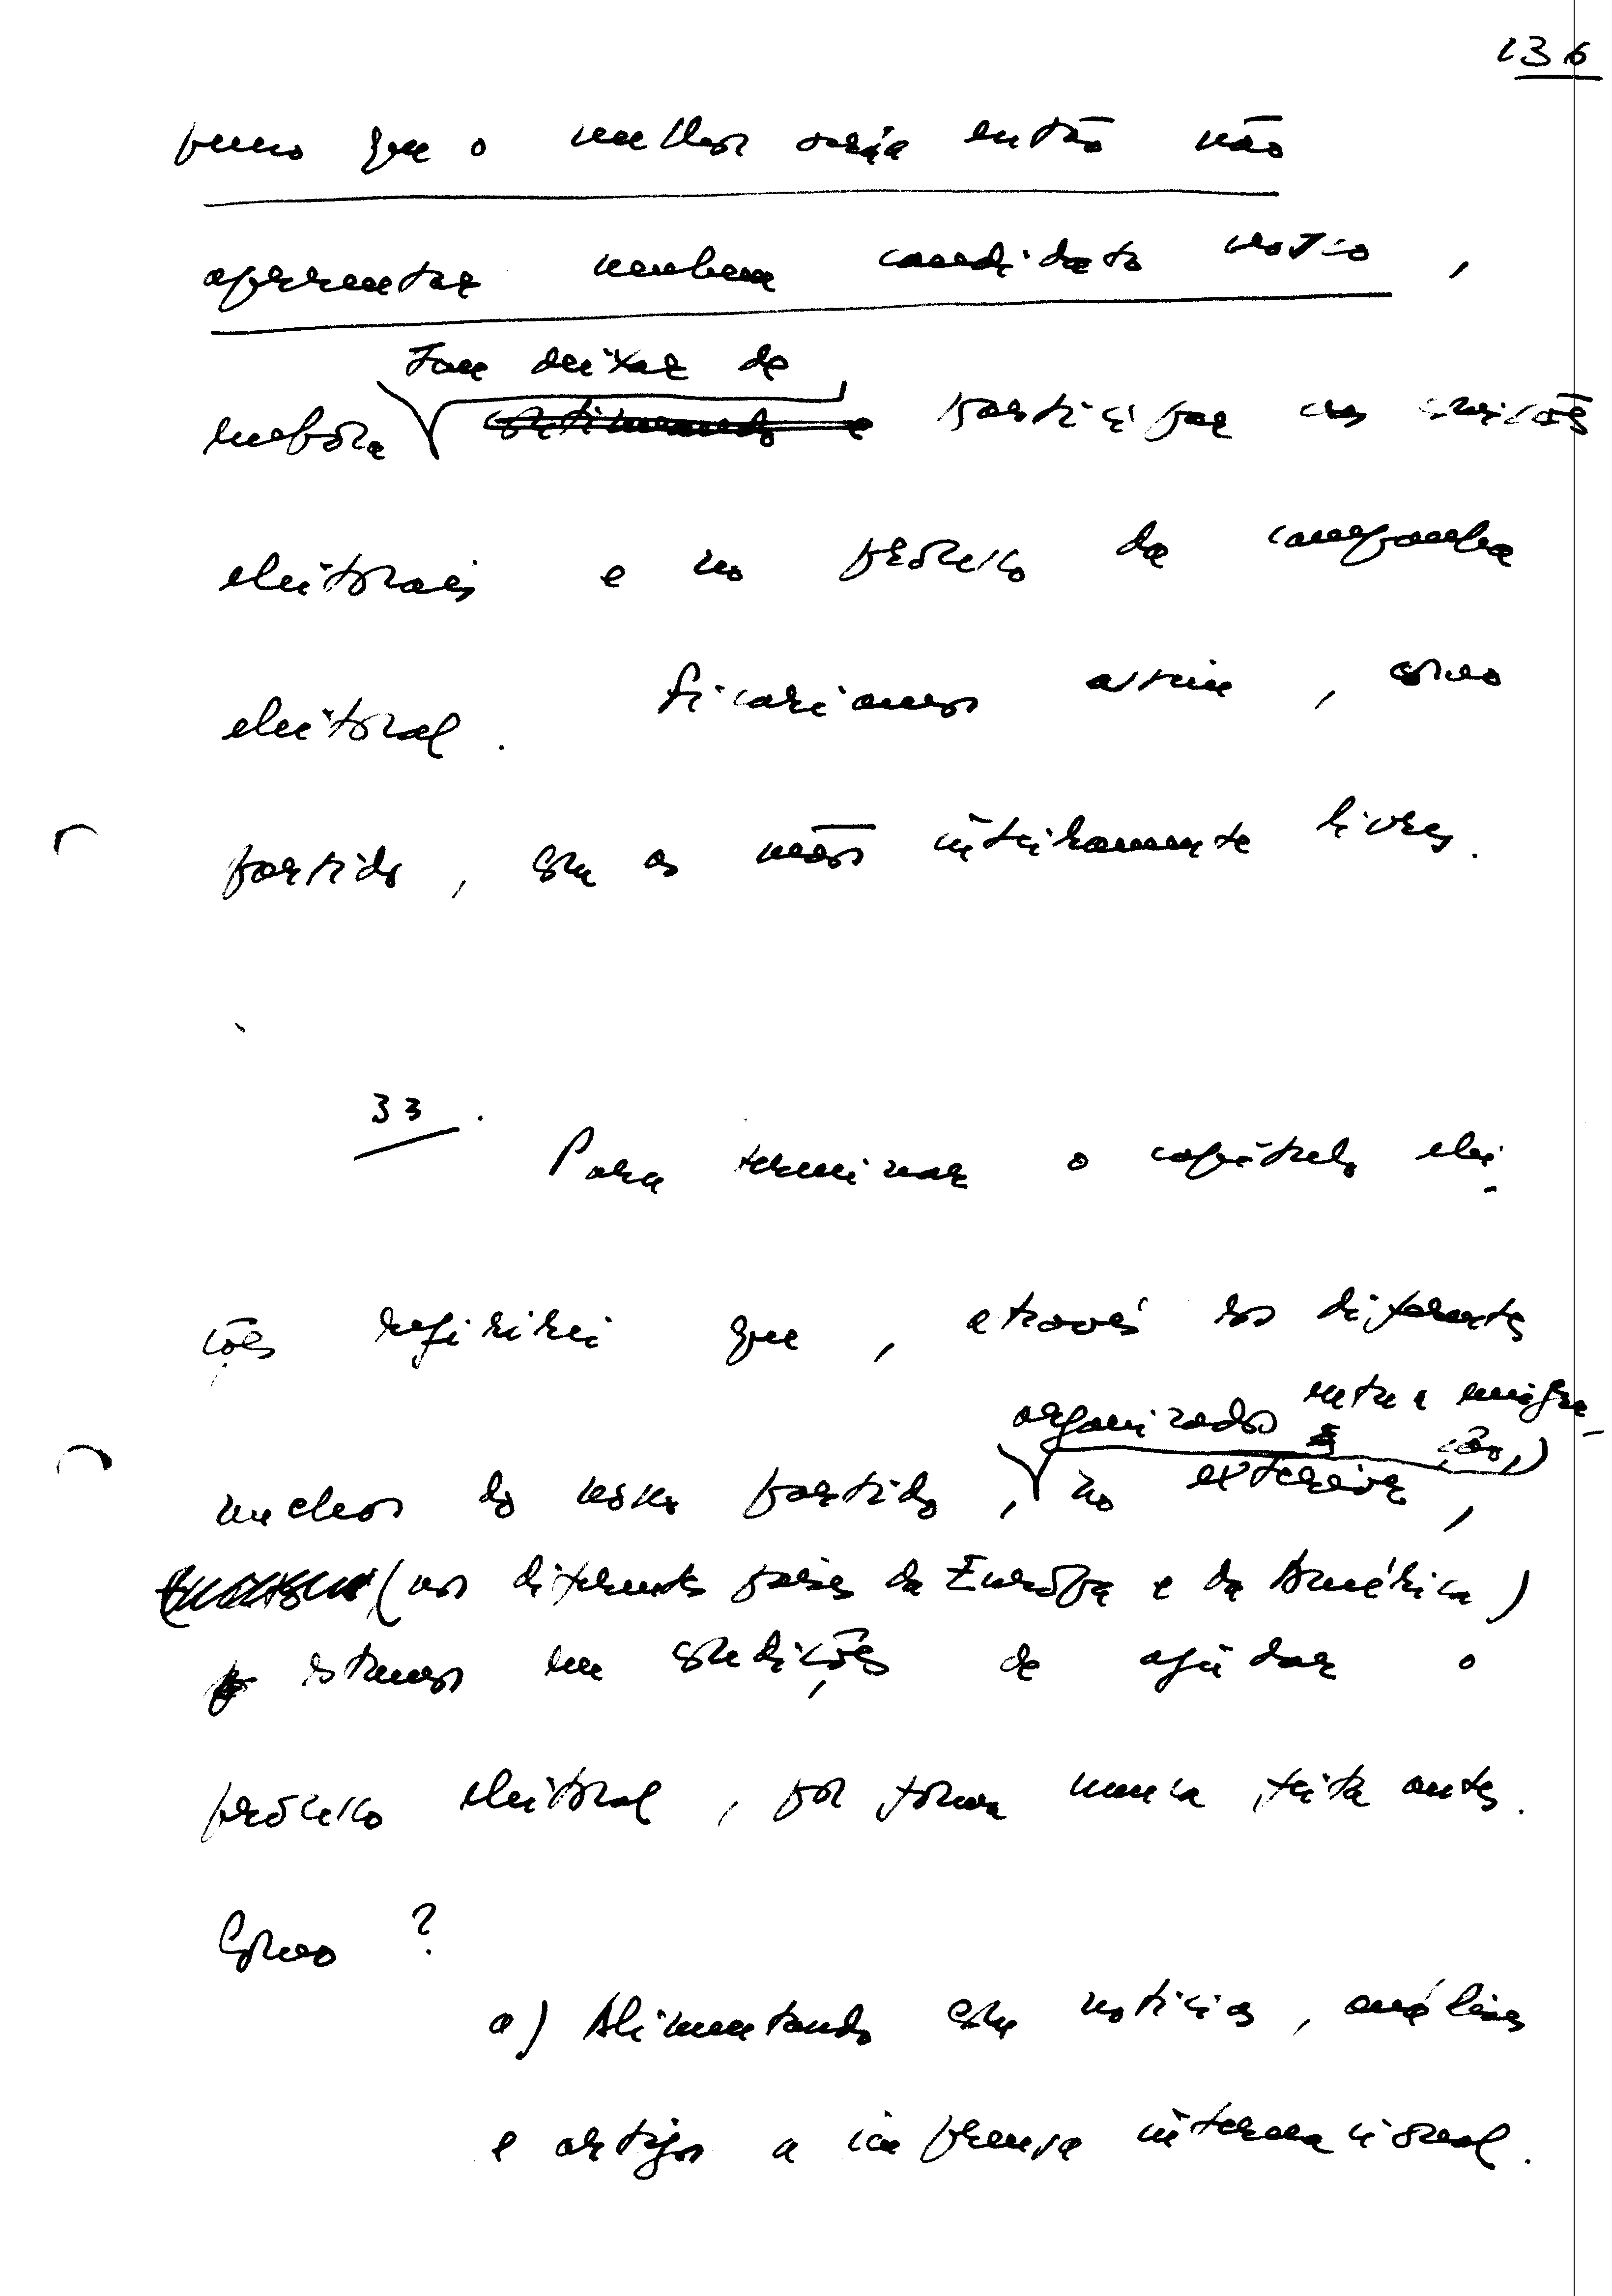 136
penso que o melhor seria então não
apresentar nenhum candidato nosso,
sem deixar de
embora participar nos comícios
eleitorais e no processo da campanha
eleitoral. Ficaríamos assim, como
partido, com as mãos inteiramente livres.
33.
Para terminar o capítulo elei-
ções referirei que, através dos diferentes
organizados entre a emigra-
ção,
nucleos do nosso partido, no exterior,
(nos diferentes paises da Európa e da América)
estamos em condições de ajudar o
processo eleitoral, por forma nunca feita antes.
Como?
a) Alimentando com noticias, análises
e artigos a imprensa internacional.